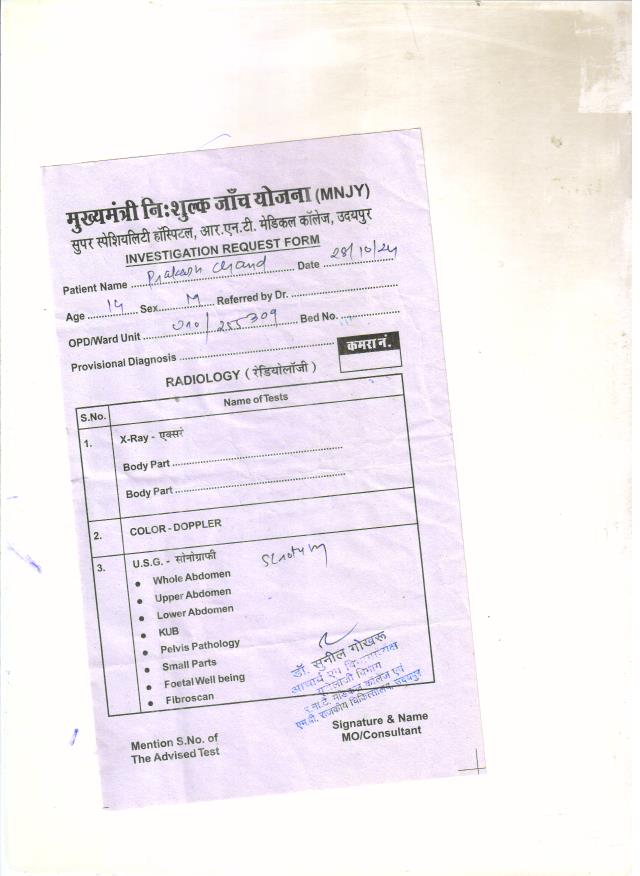 मुख्यमंत्री निःशुल्क जाँच योजना (MNJY)
सुपर स्पेशियलिटी हॉस्पिटल, आर.एन.टी. मेडिकल कॉलेज, उदयपुर
INVESTIGATION REQUEST FORM
Patient Name Prakash Chand Date 28/10/24
Age 14 Sex M Referred by Dr.
OPD/Ward Unit 255309 Bed No.
Provisional Diagnosis
कमरा नं.
RADIOLOGY ( रेडियोलॉजी )
S.No. Name of Tests
1. X-Ray - एक्सरे
Body Part
Body Part
2. COLOR - DOPPLER
3. U.S.G. - सोनोग्राफी Scrotum
• Whole Abdomen
• Upper Abdomen
• Lower Abdomen
• KUB
• Pelvis Pathology
• Small Parts
• Foetal Well being
• Fibroscan
डॉ. सुनील गोखरू
आचार्य एवं विभागाध्यक्ष
यूरोलॉजी विभाग
मेडिकल कॉलेज एवं
राजकीय चिकित्सालय, उदयपुर
Mention S.No. of
The Advised Test
Signature & Name
MO/Consultant